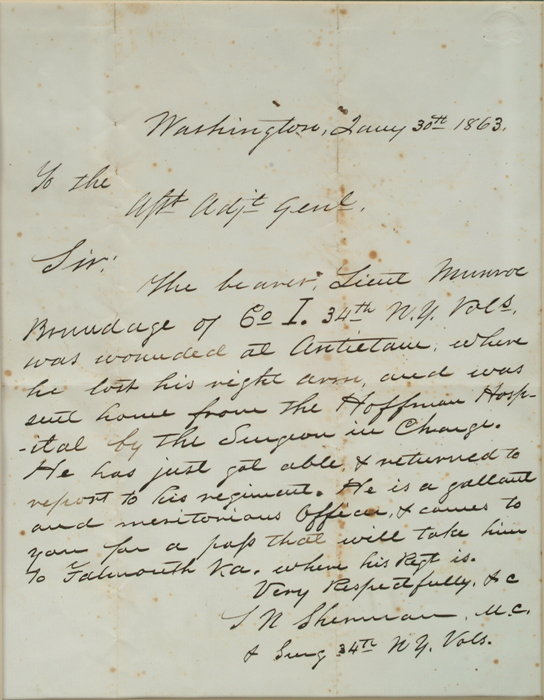 Washington, Jany 30th 1863.
To the
Asst Adjt Genl.
Sir:
The bearer, Lieut Munroe
Brundage of Co I. 34th N.Y. Vols.
was wounded at Antietam, where
he lost his right arm, and was
sent home from the Hoffman Hosp-
-ital by the Surgeon in Charge.
He has just got able, & returned to
report to his regiment. He is a gallant
and meritorious Officer, & comes to
you for a pass that will take him
to Falmouth Va. where his Regt is.
Very Respectfully, &c
S N Sherman, M.C.
& Surg 34th N.Y. Vols.